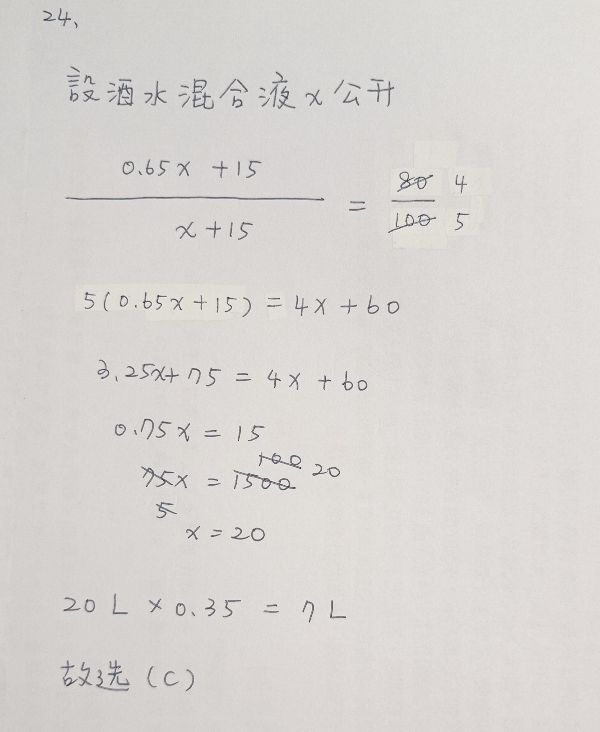 24、
設酒水混合液x公升
0.65x +15
x+15
=
80 4
100 5
5(0.65x+15) = 4x+60
3.25x+75 = 4x+60
0.75x = 15
100
75x = 1500 20
5
x=20
20 L × 0.35 = 7 L
故选(C)